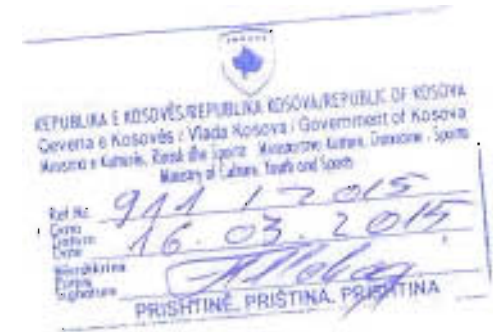 REPUBLIKA E KOSOVËS/REPUBLIKA KOSOVA/REPUBLIC OF KOSOVA
Qeveria e Kosovës / Vlada Kosova / Government of Kosova
Ministria e Kulturës, Rinisë dhe Sportit Ministarstvo Kulture, Omladine i Sporta
Ministry of Culture, Youth and Sports
Ref No. 911 / 2015
Datum 16. 03. 2015
Signature
PRISHTINË, PRIŠTINA, PRISHTINA